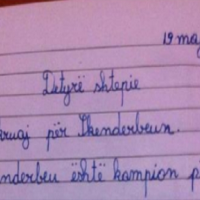 19 ma
Detyrë shtepie
krugj për Skenderbeun.
nderbeu është kampion p